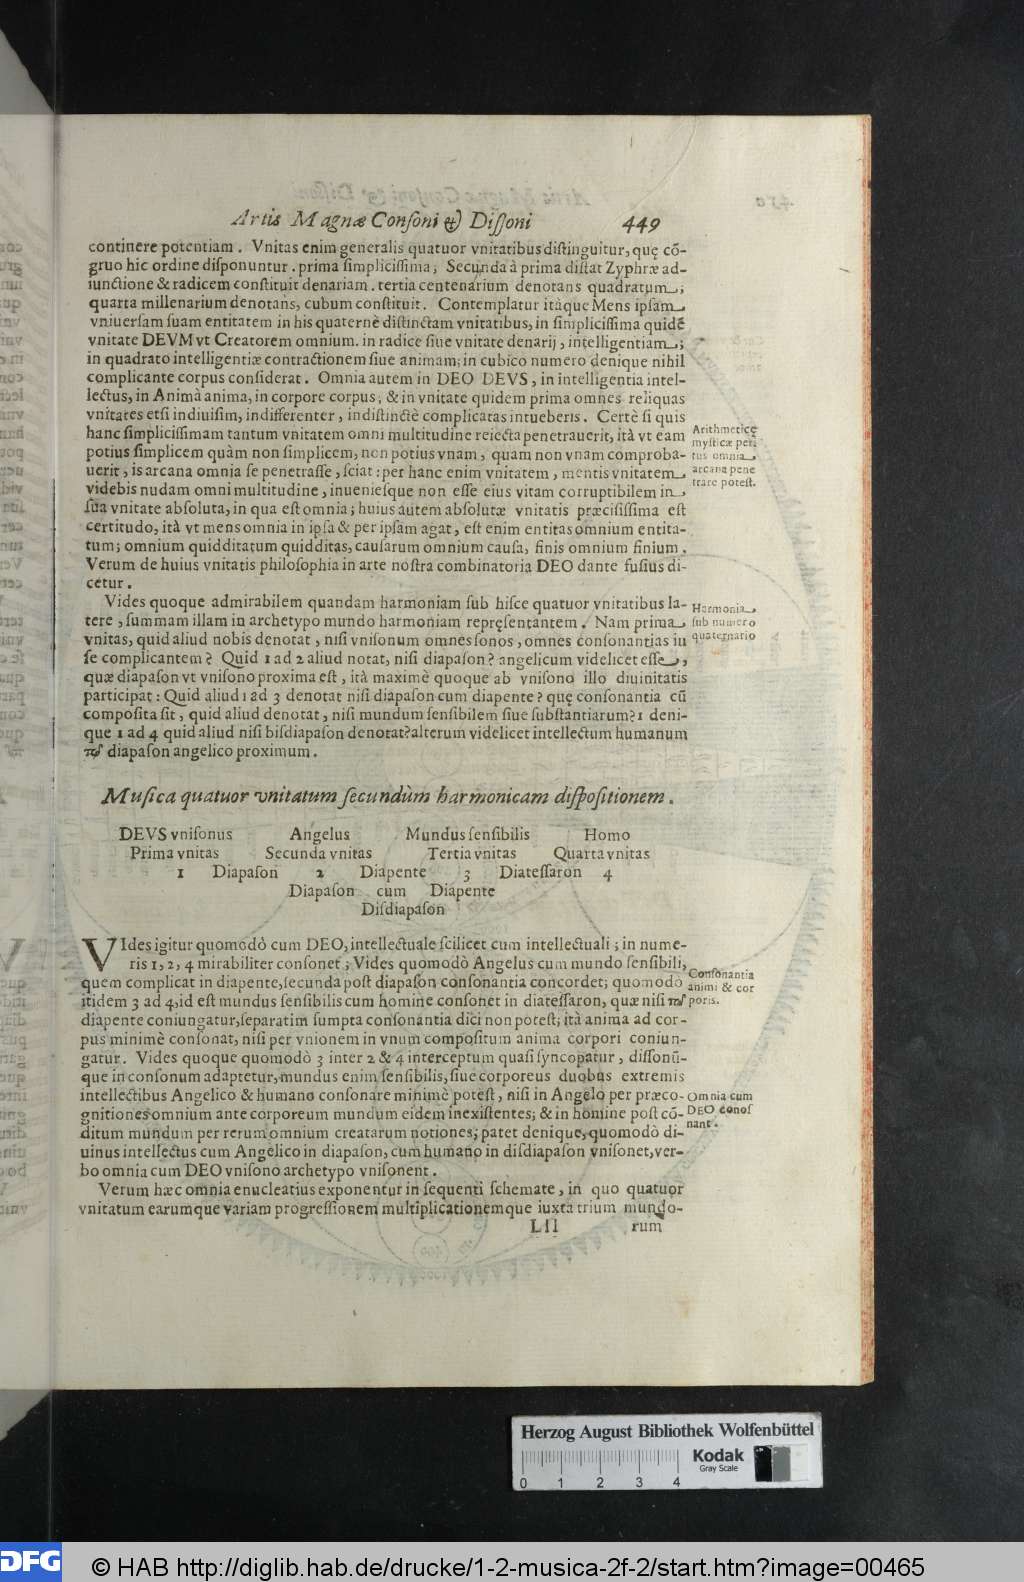 Artis Magnæ Consoni & Dissoni 449
continere potentiam. Vnitas enim generalis quatuor vnitatibus distinguitur, quę cõ-
gruo hic ordine disponuntur. prima simplicissima; Secunda à prima distat Zyphræ ad-
iunctione & radicem constituit denariam. tertia centenarium denotans quadratum;
quarta millenarium denotans, cubum constituit. Contemplatur itàque Mens ipsam
vniuersam suam entitatem in his quaternè distinctam vnitatibus, in simplicissima quidẽ
vnitate DEVM vt Creatorem omnium. in radice siue vnitate denarij, intelligentiam;
in quadrato intelligentiæ contractionem siue animam; in cubico numero denique nihil
complicante corpus considerat. Omnia autem in DEO DEVS, in intelligentia intel-
lectus, in Animà anima, in corpore corpus, & in vnitate quidem prima omnes reliquas
vnitates etsi indiuisim, indifferenter, indistinctè complicatas intueberis. Certè si quis
hanc simplicissimam tantum vnitatem omni multitudine reiecta penetrauerit, ità vt eam
potius simplicem quàm non simplicem, non potius vnam, quam non vnam comproba-
uerit, is arcana omnia se penetrasse, sciat: per hanc enim vnitatem, mentis vnitatem
videbis nudam omni multitudine, inueniesque non esse eius vitam corruptibilem in
sua vnitate absoluta, in qua est omnia; huius autem absolutæ vnitatis præcisissima est
certitudo, ità vt mens omnia in ipsa & per ipsam agat, est enim entitas omnium entita-
tum; omnium quidditatum quidditas, causarum omnium causa, finis omnium finium.
Verum de huius vnitatis philosophia in arte nostra combinatoria DEO dante fusius di-
cetur.
Arithmeticę
mysticæ per
tus omnia
arcana pene
trare potest.
Vides quoque admirabilem quandam harmoniam sub hisce quatuor vnitatibus la-
tere, summam illam in archetypo mundo harmoniam repręsentantem. Nam prima
vnitas, quid aliud nobis denotat, nisi vnisonum omnes sonos, omnes consonantias in
se complicantem? Quid 1 ad 2 aliud notat, nisi diapason? angelicum videlicet esse,
quæ diapason vt vnisono proxima est, ità maximè quoque ab vnisono illo diuinitatis
participat: Quid aliud 1 ad 3 denotat nisi diapason cum diapente? quę consonantia cũ
composita sit, quid aliud denotat, nisi mundum sensibilem siue substantiarum? 1 deni-
que 1 ad 4 quid aliud nisi bisdiapason denotat? alterum videlicet intellectum humanum
τῷ diapason angelico proximum.
Harmonia
sub numero
quaternario
Musica quatuor vnitatum secundùm harmonicam dispositionem.
DEVS vnisonus Angelus Mundus sensibilis Homo
Prima vnitas Secunda vnitas Tertia vnitas Quarta vnitas
1 Diapason 2 Diapente 3 Diatessaron 4
Diapason cum Diapente
Disdiapason
VIdes igitur quomodò cum DEO, intellectuale scilicet cum intellectuali; in nume-
ris 1, 2, 4 mirabiliter consonet; Vides quomodò Angelus cum mundo sensibili,
quem complicat in diapente, secunda post diapason consonantia concordet; quomodo
itidem 3 ad 4, id est mundus sensibilis cum homine consonet in diatessaron, quæ nisi τῷ
diapente coniungatur, separatim sumpta consonantia dici non potest; ità anima ad cor-
pus minimè consonat, nisi per vnionem in vnum compositum anima corpori coniun-
gatur. Vides quoque quomodò 3 inter 2 & 4 interceptum quasi syncopatur, dissonũ-
que in consonum adaptetur, mundus enim sensibilis, siue corporeus duobus extremis
intellectibus Angelico & humano consonare minimè potest, nisi in Angelo per præco-
gnitiones omnium ante corporeum mundum eidem inexistentes; & in homine post cõ-
ditum mundum per rerum omnium creatarum notiones; patet denique, quomodò di-
uinus intellectus cum Angelico in diapason, cum humano in disdiapason vnisonet, ver-
bo omnia cum DEO vnisono archetypo vnisonent.
Consonantia
animi & cor
poris.
Omnia cum
DEO conos
nant.
Verum hæc omnia enucleatius exponentur in sequenti schemate, in quo quatuor
vnitatum earumque variam progressionem multiplicationemque iuxta trium mundo-
Lll rum
Herzog August Bibliothek Wolfenbüttel
Kodak
Gray Scale
0 1 2 3 4
DFG © HAB http://diglib.hab.de/drucke/1-2-musica-2f-2/start.htm?image=00465